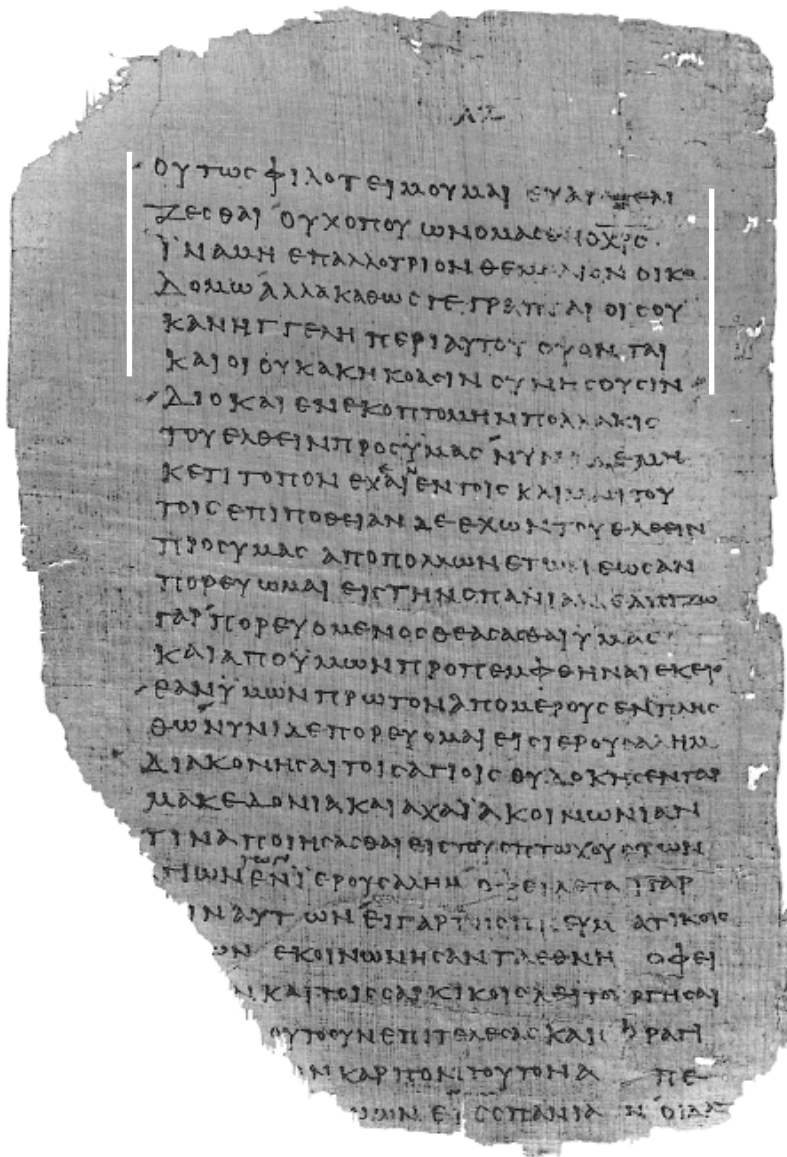 ΟΥΤΩϹ ΦΙΛΟΤΕΙΜΟΥΜΑΙ
ΖΕϹΘΑΙ ΟΥΧ ΟΠΟΥ ΩΝΟΜΑϹΘΗ
ΙΝΑ ΜΗ ΕΠ ΑΛΛΟΤΡΙΟΝ ΘΕΜΕΛΙΟΝ ΟΙΚΟ
ΔΟΜΩ ΑΛΛΑ ΚΑΘΩϹ ΓΕΓΡΑΠΤΑΙ ΟΙϹ ΟΥ
ΚΑΝΗΓΓΕΛΗ ΠΕΡΙ ΑΥΤΟΥ ΟΨΟΝΤΑΙ
ΚΑΙ ΟΙ ΟΥΚ ΑΚΗΚΟΑϹΙΝ ϹΥΝΗϹΟΥϹΙΝ
ΔΙΟ ΚΑΙ ΕΝΕΚΟΠΤΟΜΗΝ ΠΟΛΛΑΚΙϹ
ΤΟΥ ΕΛΘΕΙΝ ΠΡΟϹ ΥΜΑϹ ΝΥΝΙ ΔΕ ΜΗ
ΚΕΤΙ ΤΟΠΟΝ ΕΝ ΤΟΙϹ ΚΛΙΜΑϹΙ ΤΟΥ
ΤΟΙϹ ΕΠΙΠΟΘΕΙΑΝ ΔΕ ΕΧΩΝ ΤΟΥ ΕΛΘΕΙΝ
ΠΡΟϹ ΥΜΑϹ ΑΠΟ ΠΟΛΛΩΝ ΕΤΩΝ ΕΩϹ ΑΝ
ΠΟΡΕΥΩΜΑΙ ΕΙϹ ΤΗΝ ϹΠΑΝΙΑΝ ΕΛΠΙΖΩ
ΓΑΡ ΠΟΡΕΥΟΜΕΝΟϹ ΘΕΑϹΑϹΘΑΙ ΥΜΑϹ
ΚΑΙ ΑΠΟ ΥΜΩΝ ΠΡΟΠΕΜΦΘΗΝΑΙ ΕΚΕΙ
ΕΑΝ ΥΜΩΝ ΠΡΩΤΟΝ ΑΠΟ ΜΕΡΟΥϹ ΕΝΠΛΗϹ
ΘΩ ΝΥΝΙ ΔΕ ΠΟΡΕΥΟΜΑΙ ΕΙϹ ΙΕΡΟΥϹΑΛΗΜ
ΔΙΑΚΟΝΗϹΑΙ ΤΟΙϹ ΑΓΙΟΙϹ ΗΥΔΟΚΗϹΕΝ ΓΑΡ
ΜΑΚΕΔΟΝΙΑ ΚΑΙ ΑΧΑΪΑ ΚΟΙΝΩΝΙΑΝ
ΤΙΝΑ ΠΟΙΗϹΑϹΘΑΙ ΕΙϹ ΤΟΥϹ ΠΤΩΧΟΥϹ ΤΩΝ
ΓΙΩΝ ΤΩΝ ΕΝ ΙΕΡΟΥϹΑΛΗΜ ΟΦΕΙΛΕΤΑΙ ΓΑΡ
ΙΝ ΑΥΤΩΝ ΕΙ ΓΑΡ ΤΟΙϹ ΠΝΕΥΜΑΤΙΚΟΙϹ
ΩΝ ΕΚΟΙΝΩΝΗϹΑΝ ΤΑ ΕΘΝΗ ΟΦΕΙ
Ν ΚΑΙ ΤΟΙϹ ϹΑΡΚΙΚΟΙϹ
ΟΥΤΟ ΟΥΝ ΕΠΙΤΕΛΕϹΑϹ ΚΑΙ ϹΦΡΑΓΙ
ΟΝ ΚΑΡΠΟΝ ΤΟΥΤΟΝ Α ΠΕ
ΥΜΩΝ ΕΙϹ ϹΠΑΝΙΑΝ ΟΙΔΑ